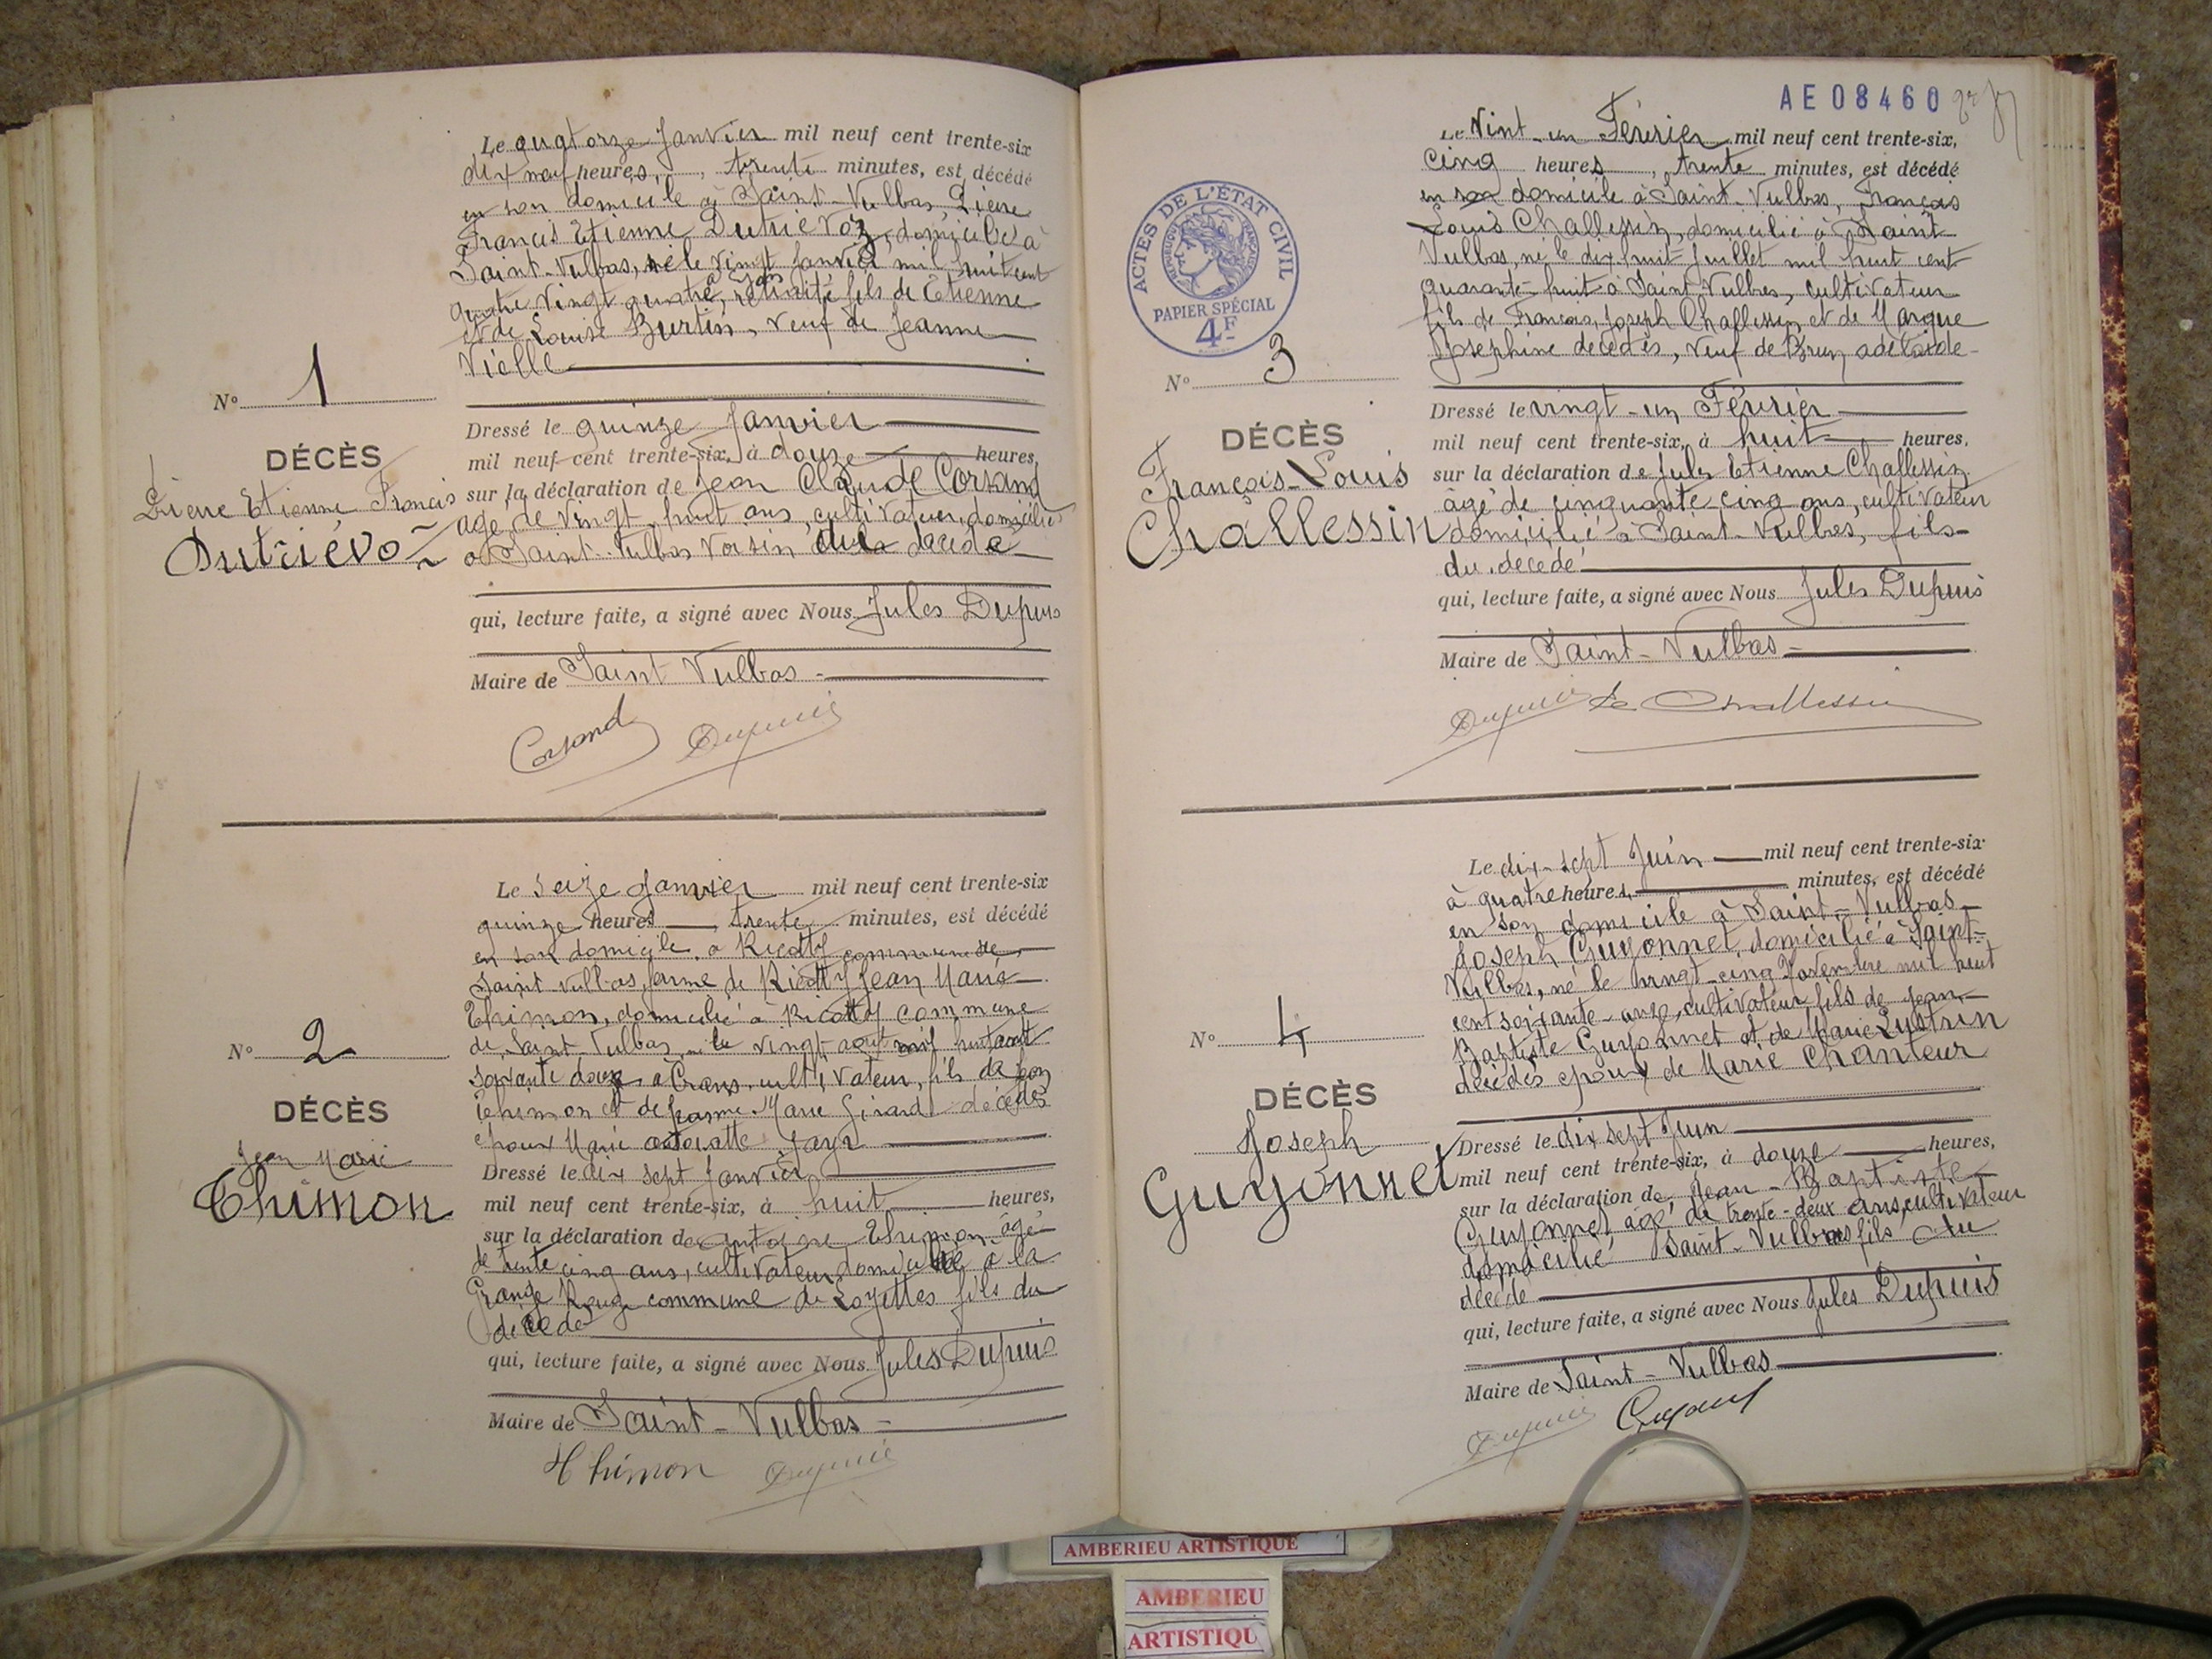 Le quatorze Janvier mil neuf cent trente-six
dix neuf heures, trente minutes, est décédé
en son domicile à Saint-Vulbas, Pierre
Francis Etienne Dutrievoz, domicilié à
Saint-Vulbas, né le vingt Janvier mil huit cent
quatre vingt quatre, à retraité fils de Etienne
et de Louise Burtin, veuf de Jeanne
Vielle
N° 1
DÉCÈS
Pierre Etienne Francis
Dutriévoz
Dressé le quinze Janvier
mil neuf cent trente-six, à douze heures,
sur la déclaration de Jean Claude Corsand
age de vingt huit ans, cultivateur, domicilié
à Saint-Vulbas voisin du décédé
qui, lecture faite, a signé avec Nous Jules Dupuis
Maire de Saint Vulbas
Corsand Dupuis
Le seize Janvier mil neuf cent trente-six
quinze heures trente minutes, est décédé
en son domicile à Ricotty commune de
Saint Vulbas, ferme de Ricotty Jean Marie
Thimon, domicilié à Ricotty commune
de Saint Vulbas né le vingt août mil huit cent
soixante douze à Crans, cultivateur, fils de
Thimon et de Marie Girard décédés
époux Marie Jayr
N° 2
DÉCÈS
Jean Marie
Thimon
Dressé le dix sept Janvier
mil neuf cent trente-six, à huit heures,
sur la déclaration de antoine Thimon âgé
de trente cinq ans, cultivateur, domicilié à la
Grange Rouge commune de Loyettes fils du
décédé
qui, lecture faite, a signé avec Nous Jules Dupuis
Maire de Saint-Vulbas
Thimon Dupuis
AE08460
Le Vint-un Février mil neuf cent trente-six,
cinq heures, trente minutes, est décédé
en son domicile à Saint-Vulbas, François
Louis Challessin, domicilié à Saint
Vulbas, né le dix huit Juillet mil huit cent
quarante-huit à Saint-Vulbas, cultivateur
fils de François Joseph Challessin et de Margue
Josephine décédés, veuf de Brun adélaïde
ACTES DE L'ÉTAT CIVIL
RÉPUBLIQUE FRANÇAISE
PAPIER SPÉCIAL
4F
N° 3
DÉCÈS
François-Louis
Challessin
Dressé le vingt-un Février
mil neuf cent trente-six, à huit heures,
sur la déclaration de Jules Etienne Challessin
âgé de cinquante cinq ans, cultivateur
domicilié à Saint-Vulbas, fils
du décédé
qui, lecture faite, a signé avec Nous Jules Dupuis
Maire de Saint-Vulbas
Dupuis Challessin
Le dix-sept Juin mil neuf cent trente-six
à quatre heures, minutes, est décédé
en son domicile à Saint-Vulbas
Joseph Guyonnet, domicilié à Saint-
Vulbas, né le vingt-cinq Novembre mil huit
cent soixante-onze, cultivateur fils de Jean
Baptiste Guyonnet et de Marie Lustrin
décédés époux de Marie Chanteur
N° 4
DÉCÈS
Joseph
Guyonnet
Dressé le dix sept Juin
mil neuf cent trente-six, à douze heures,
sur la déclaration de Jean-Baptiste
Guyonnet, âgé de trente-deux ans, cultivateur
domicilié Saint-Vulbas fils du
décédé
qui, lecture faite, a signé avec Nous Jules Dupuis
Maire de Saint-Vulbas
Dupuis
AMBERIEU ARTISTIQUE
AMBERIEU
ARTISTIQU